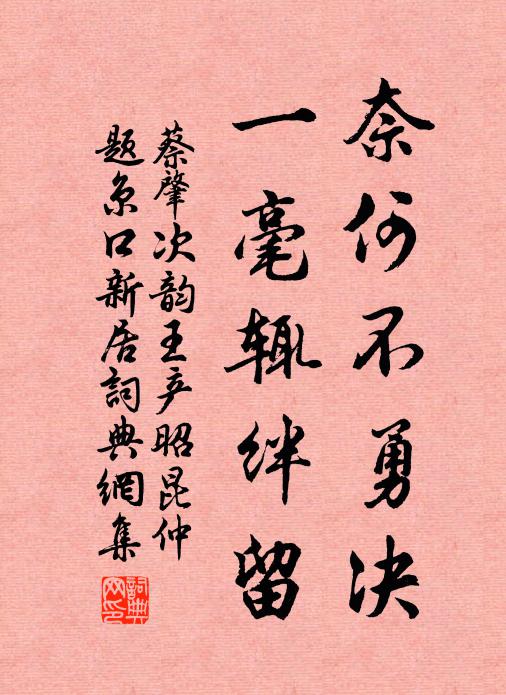 奈何不勇决
一毫辄绊留
蔡肇次韵王彦昭昆仲
题京口新居詞典網集
詞典网印